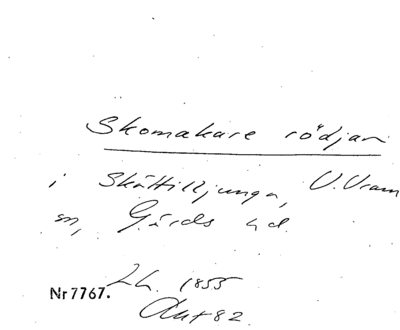 Skomakare rödjan
i Skättilljunga, V. Vram
sn, Gärds hd.
Lh. 1855
Nr 7767.
Okt 82